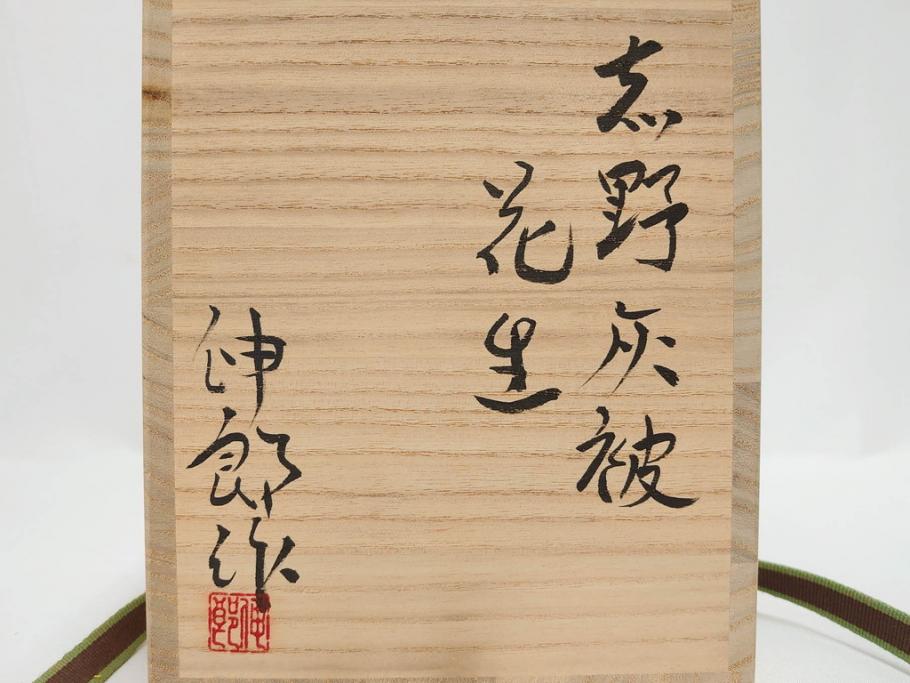 志野灰被
花生
伸郎作
伸郎